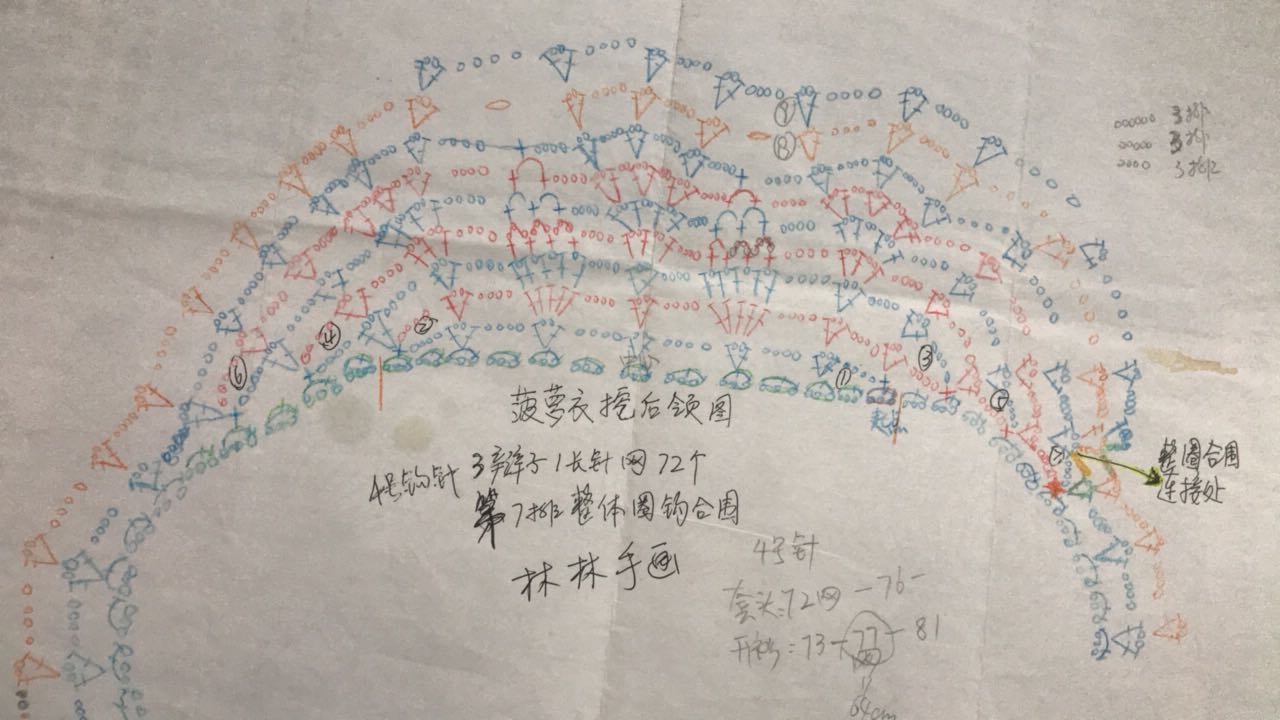 3排
3排
3排
⑨
⑧
②
④
⑥
①
③
⑤
⑦
菠萝衣挖后领图
4号钩针 3辫子1长针网72个
第7排整体圈钩合围
林林手画
整圈合围
连接处
4号针
套头:72网-76-
开衫:73-77-81
64cm